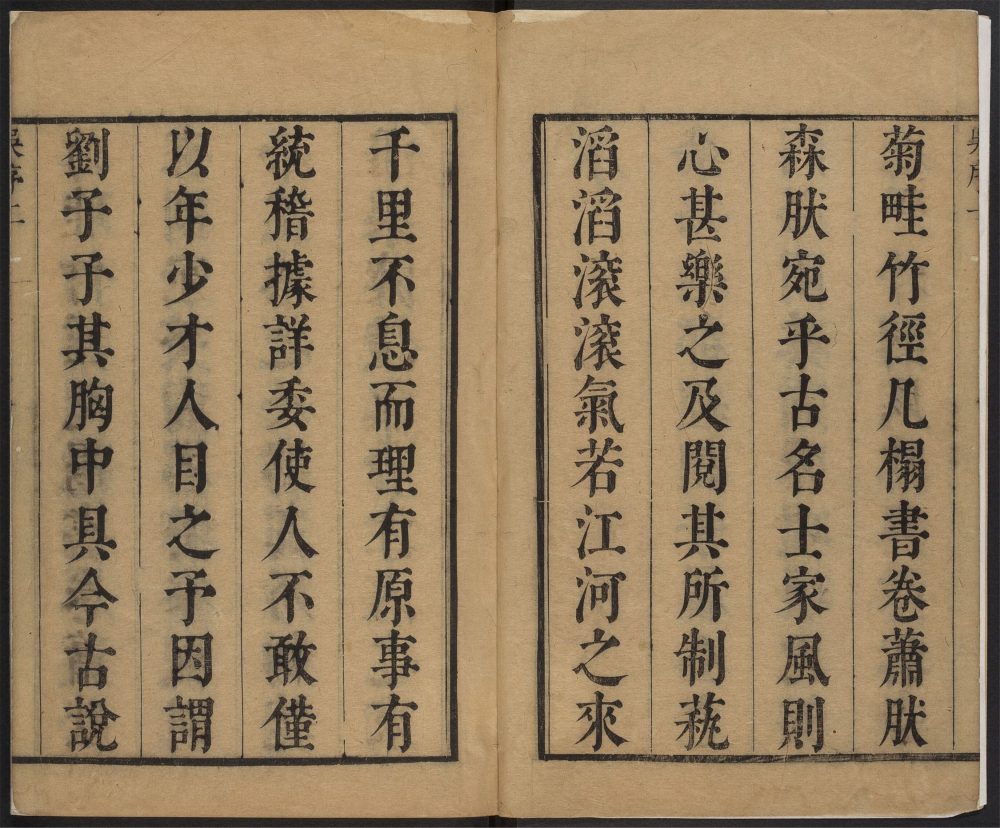 吳序一
菊畦竹徑几榻書卷蕭肰
森肰宛乎古名士家風則
心甚樂之及閱其所制萟
滔滔滚滚氣若江河之來
千里不息而理有原事有
統稽據詳委使人不敢僅
以年少才人目之予因謂
劉子子其胸中具今古說
吳序二